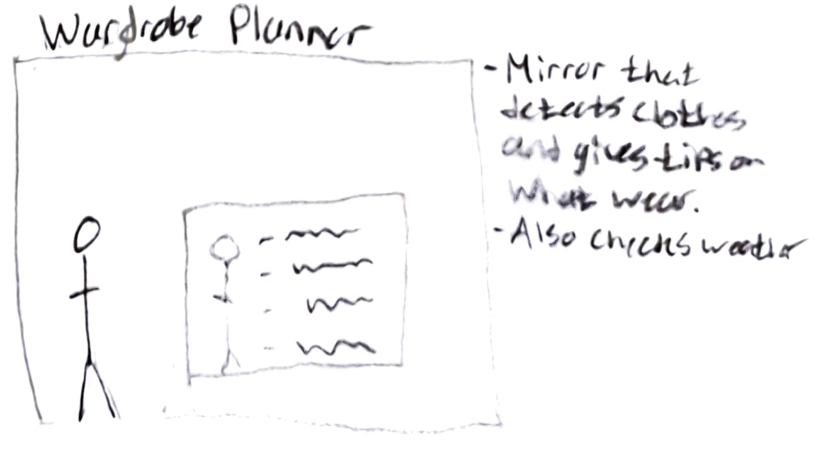 Wardrobe Planner
- Mirror that
detects clothes
and gives tips on
what wear.
- Also checks weather